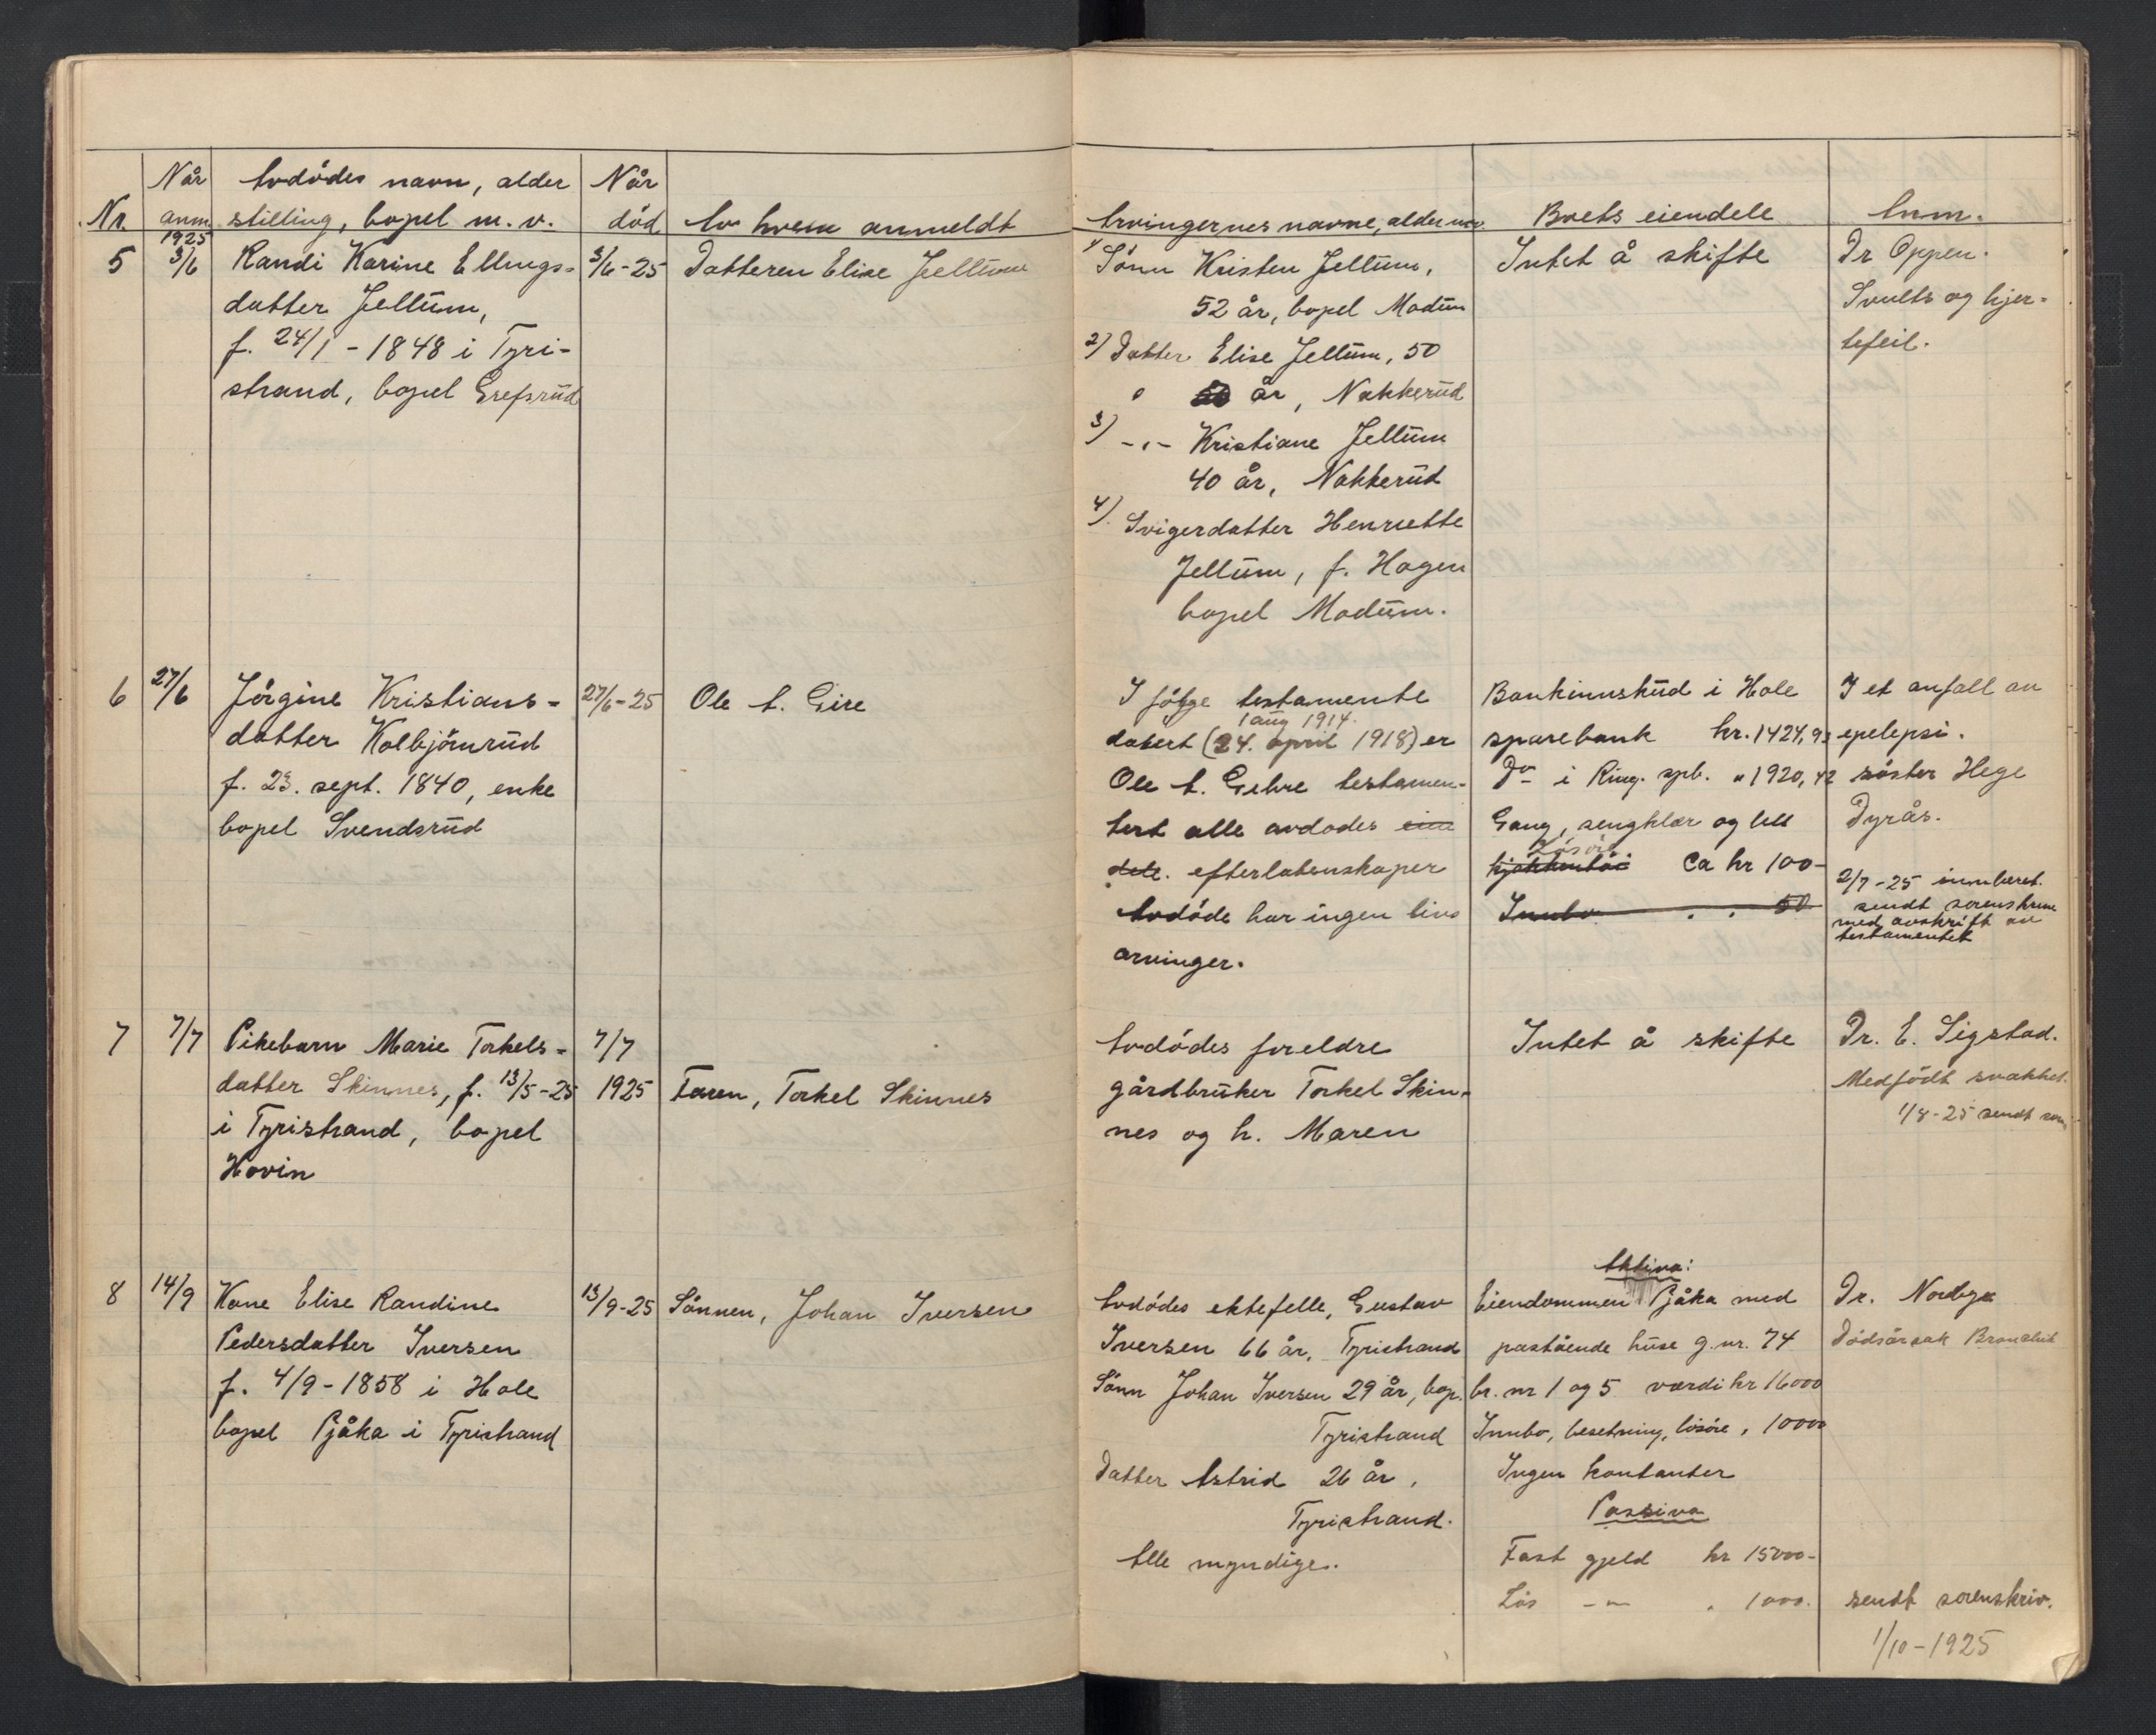 Nr.
Når
anm.
Avdødes navn, alder
stilling, bopel m. v.
Når
død
Av hvem anmeldt
Arvingernes navne, alder m.v.
Boets eiendele
Anm.
5
1925
3/6
Randi Karine Ellings-
datter Jellum,
f. 24/1 - 1848 i Tyri-
strand, bopel Grefsrud
3/6-25
Datteren Elise Jellum
1) Sønn Kristen Jellum,
52 år, bopel Modum
2) Datter Elise Jellum, 50
år, Nakkerud
3) -"- Kristiane Jellum
40 år, Nakkerud
4) Svigerdatter Henriette
Jellum, f. Hagen
bopel Modum.
Intet å skifte
Dr Oppen.
Svulst og hjer-
tefeil.
6
27/6
Jørgine Kristians-
datter Kolbjørnrud
f. 23. sept. 1840, enke
bopel Svendsrud
27/6-25
Ole A. Eire
I følge testamente
1 aug 1914.
datert (24. april 1918) er
Ole A. testamen-
tert alle avdødes eien
dele. efterlatenskaper
Avdøde har ingen livs
arvinger.
Bankinnskud i Hole
sparebank kr. 1424,93
Do i Ring. spb. " 1920,42
Gang, sengklær og litt
Løsøre
kjøkkentøi Ca kr 100-
Innbo " " 50
I et anfall av
epelepsi.
søster Hege
Dyrås.
2/7-25 innberet.
sendt sorenskriv
med avskrift av
testamentet
7
7/7
Pikebarn Marie Torkels-
datter Skinnes, f. 13/5-25
i Tyristrand, bopel
Hovin
7/7
1925
Faren, Torkel Skinnes
Avdødes foreldre
gårdbruker Torkel Skin-
nes og h. Maren
Intet å skifte
Dr. E. Sigstad.
Medfødt svakhet.
1/8-25 sendt sor
8
14/9
Kone Elise Randine
Pedersdatter Iversen
f. 4/9-1858 i Hole
bopel Pjåka i Tyristrand
13/9-25
Sønnen, Johan Iversen
Avdødes ektefelle, Gustav
Iversen 66 år, Tyristrand
Sønn Johan Iversen 29 år, bop.
Tyristrand
Datter Astrid 26 år,
Tyristrand.
Alle myndige.
Aktiva:
Eiendommen Pjåka med
påstående huse g.nr. 74
br. nr 1 og 5 værdi kr 16000
Innbo, besetning, løsøre " 10000
Ingen kontanter
Passiva
Fast gjeld kr 15000-
Løs -"- " 1000.
Dr.
Dødsårsak Bronchit
sendt sorenskriv.
1/10-1925